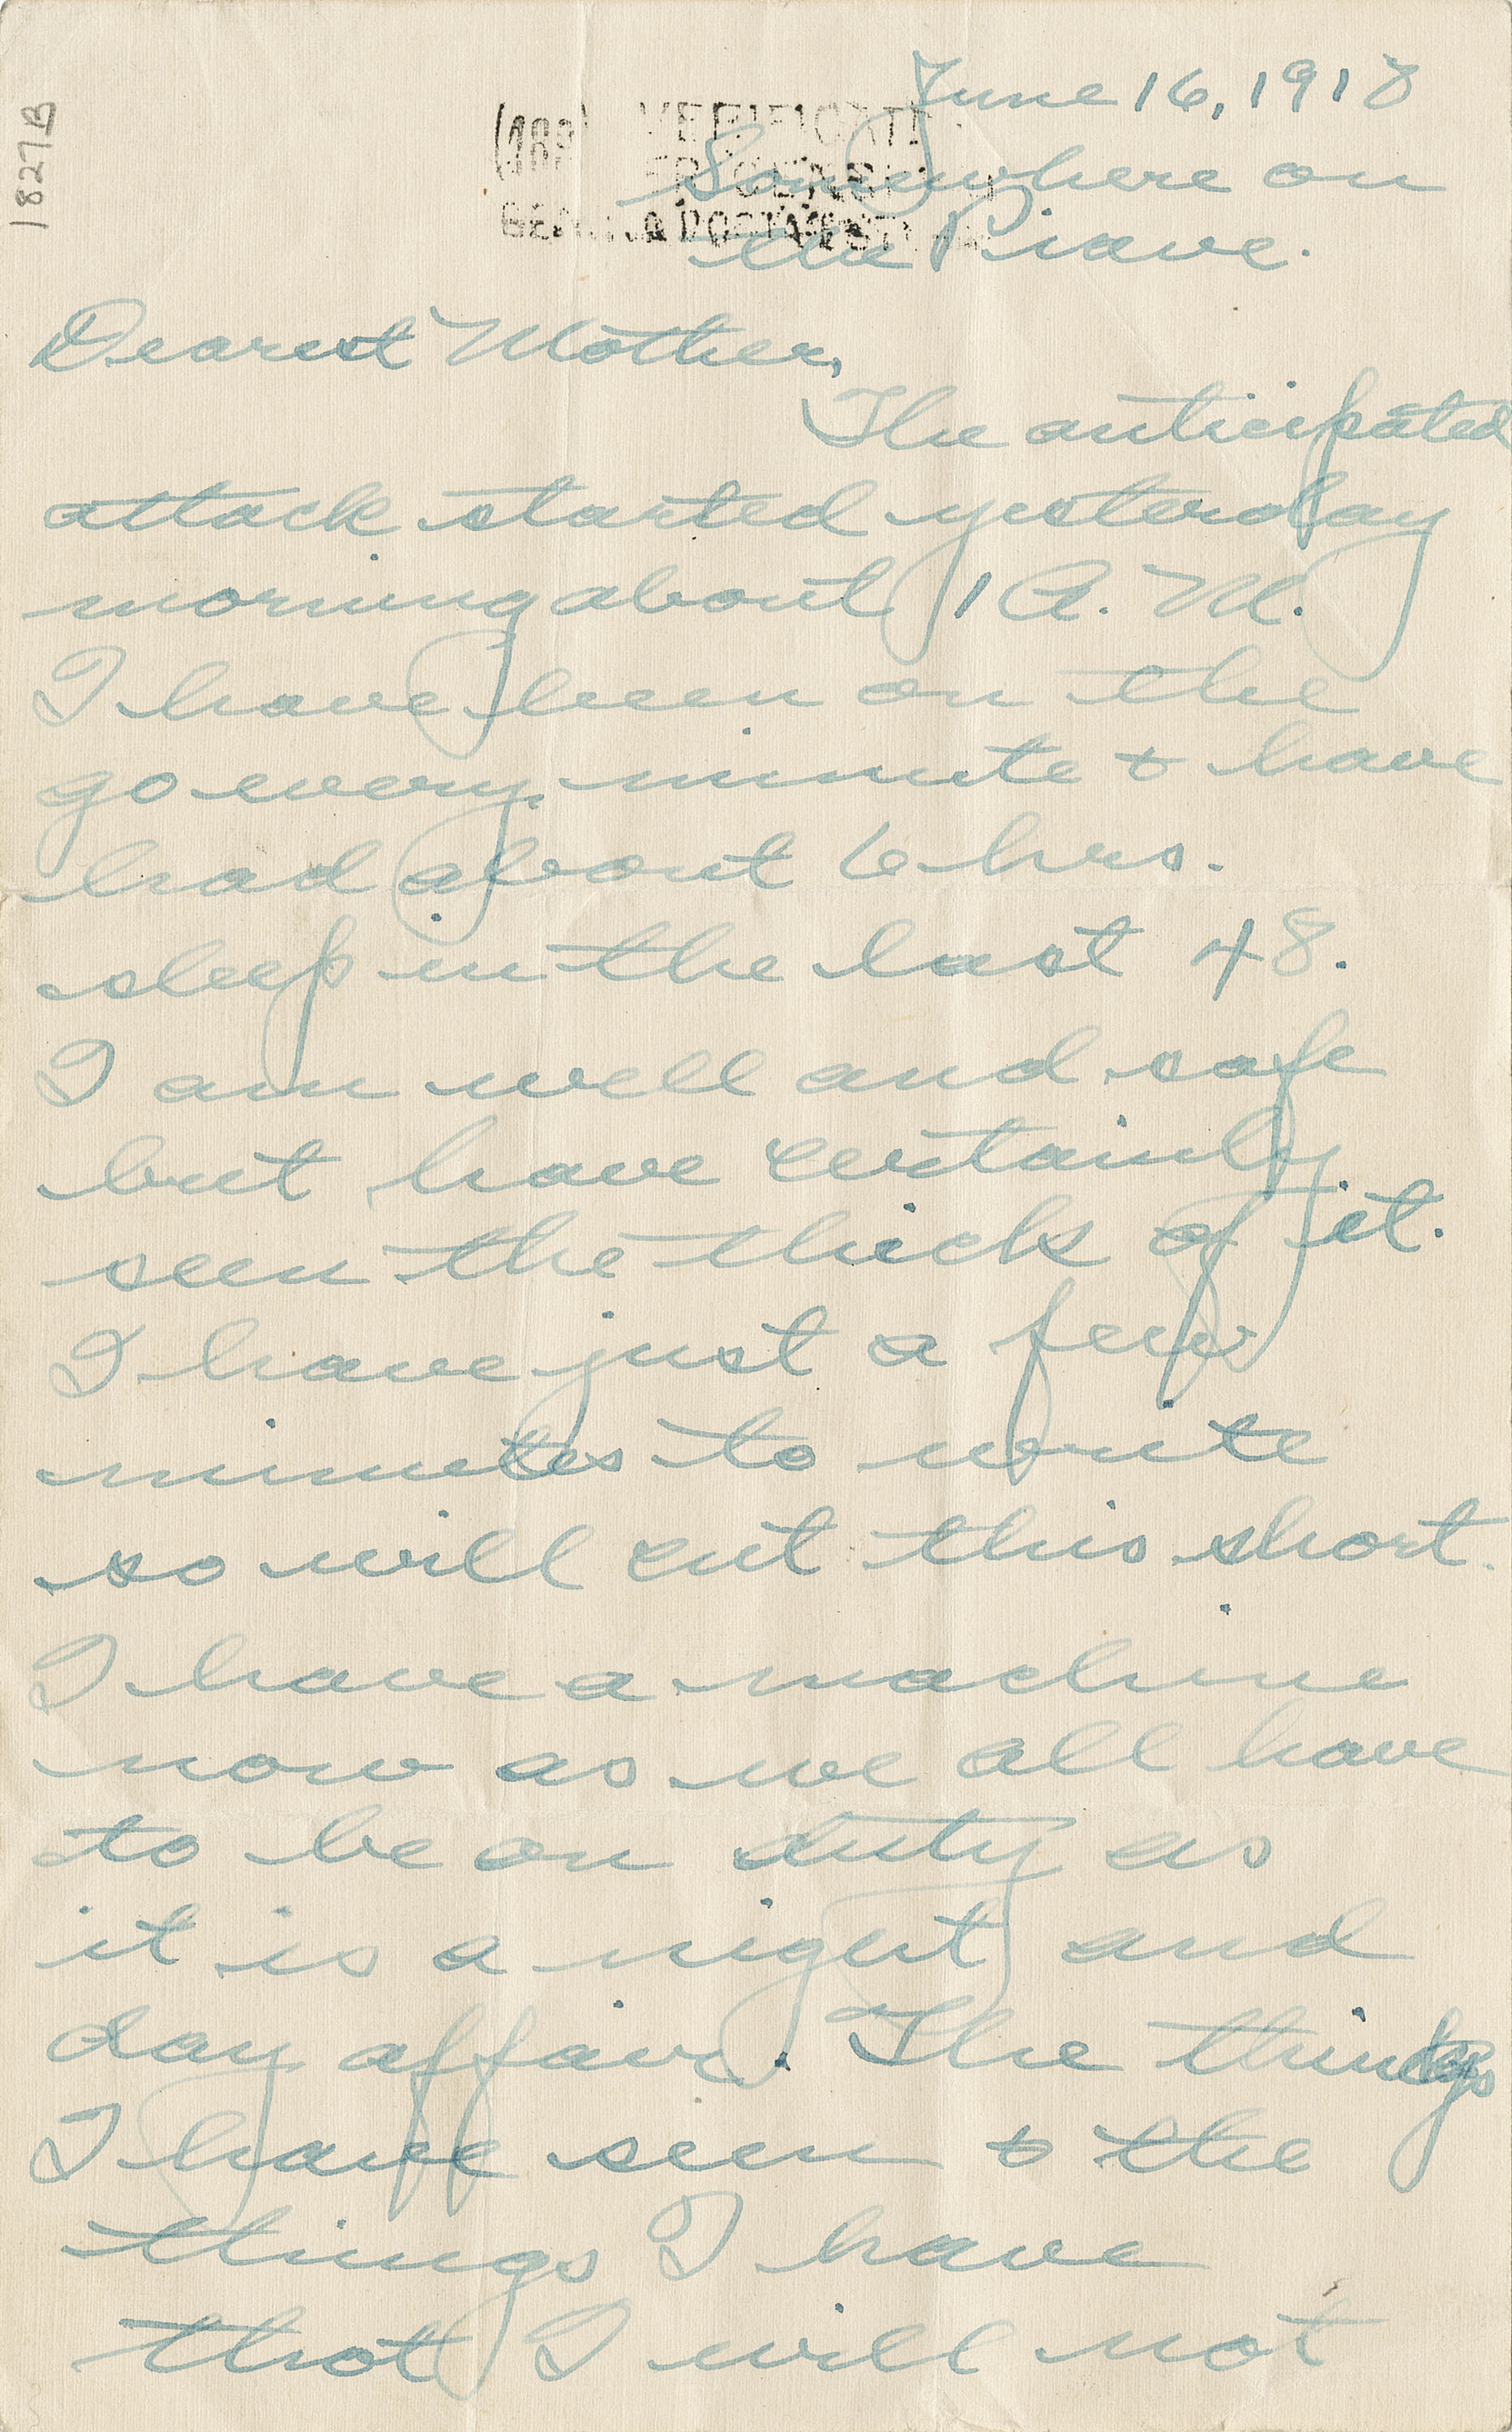 June 16, 1918
Somewhere on
the Piave.
1827B
(183) VERIFICATO
Dearest Mother,
The anticipated
attack started yesterday
morning about 1 A.M.
I have been on the
go every minute & have
had about 6 hrs.
sleep in the last 48.
I am well and safe
but have certainly
seen the thick of it.
I have just a few
minutes to write
so will cut this short.
I have a machine
now as we all have
to be on duty as
it is a night and
day affair. The things
I have seen & the
things I have
that I will not